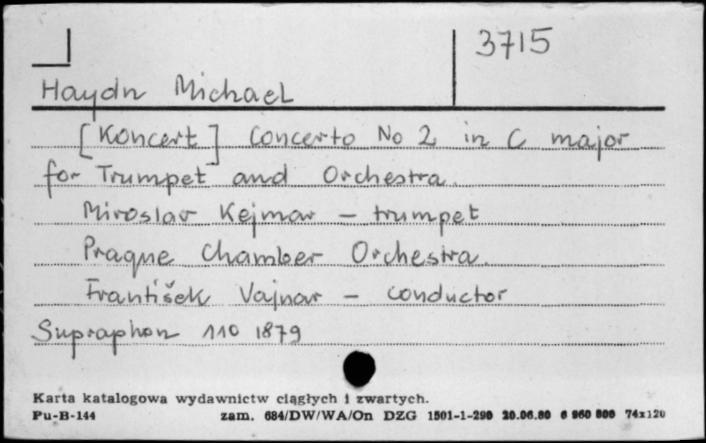 3715
Haydn Michael
[Koncert] Concerto No 2 in C major
for Trumpet and Orchestra.
Miroslav Kejmar – trumpet
Prague Chamber Orchestra.
František Vajnar – conductor
Supraphon 110 1879
Karta katalogowa wydawnictw ciągłych i zwartych.
Pu-B-144 zam. 684/DW/WA/On DZG 1501-1-290 20.06.80 6 960 800 74x120